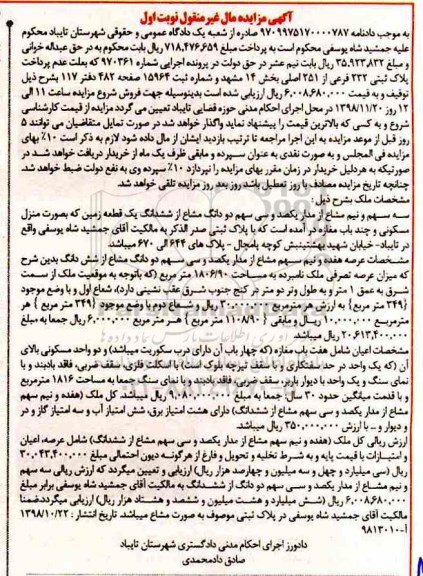 آگهی مزایده مال غیر منقول نوبت اول
به موجب دادنامه ۹۷۰۹۹۷۵۱۷۰۰۰۰۷۸۷ صادره از شعبه یک دادگاه عمومی و حقوقی شهرستان تایباد محکوم
علیه جمشید شاه یوسفی محکوم است به پرداخت مبلغ ۷۱۸,۴۷۶,۶۵۹ ریال بابت محکوم به در حق عبداله خوانی
و مبلغ ۳۵,۹۲۳,۸۳۲ ریال بابت نیم عشر در حق دولت در پرونده اجرایی شماره ۹۷۰۳۶۱ که بعلت عدم پرداخت
پلاک ثبتی ۲۳۲ فرعی از ۲۵۱ اصلی بخش ۱۴ مشهد و شماره ثبت ۱۵۹۶۴ صفحه ۴۸۲ دفتر ۱۱۷ بشرح ذیل
توقیف و به قیمت ۶,۰۰۸,۶۸۰,۰۰۰ ریال ارزیابی شده است بدینوسیله جهت فروش شروع مزایده ساعت ۱۱ الی
۱۲ روز ۱۳۹۸/۱۱/۲۰ در محل اجرای احکام مدنی حوزه قضایی تایباد تعیین می گردد مزایده از قیمت کارشناسی
شروع و به کسی که بالاترین قیمت را پیشنهاد نماید واگذار خواهد شد در صورت تمایل متقاضیان می توانند ۵
روز قبل از موعد مزایده به این اجرا مراجعه تا ترتیب بازدید ایشان از مال داده شود لازم به ذکر است ۱۰٪ بهای
مزایده فی المجلس و به صورت نقدی به عنوان سپرده و مابقی ظرف یک ماه از خریدار دریافت خواهد شد در
صورتیکه به هر دلیل خریدار در زمان مقرر بهای مزایده را نپردازد ۱۰٪ سپرده وی به نفع دولت ضبط خواهد شد.
چنانچه تاریخ مزایده مصادف با روز تعطیل باشد روز بعد روز مزایده تلقی خواهد شد.
مشخصات ملک بشرح ذیل:
سه سهم و نیم مشاع از مدار یکصد و سی سهم دو دانگ مشاع از ششدانگ یک قطعه زمین که بصورت منزل
مسکونی و چند باب مغازه در آمده است که با پلاک ثبتی صدر الذکر به مالکیت آقای جمشید شاه یوسفی واقع
در تایباد- خیابان شهید بهشتی نبش کوچه پامچال - پلاک های ۶۴۴ الی ۶۷۰ میباشد.
مشخصات عرصه هفده و نیم سهم مشاع از مدار یکصد و سی سهم دو دانگ مشاع از شش دانگ بدین شرح
که میزان عرصه تصرفی ملک نامبرده به مساحت ۱۸۰۶/۹۰ متر مربع (که باتوجه به موقعیت ملک از سمت
شرق به عمق ۱ متر و به طول وتر دو متر در کنج جنوب شرق عقب نشینی دارد)، شعاع اول و با وضع موجود
{۳۴۹ متر مربع} به ارزش هر مترمربع ۳۰,۰۰۰,۰۰۰ ریال و شعاع دوم با وضع موجود {۳۴۹ متر مربع} هر
مترمربع ۱۰,۰۰۰,۰۰۰ ریال و مابقی {۱۱۰۸/۹۰ متر مربع} هر متر مربع ۶,۰۰۰,۰۰۰ ریال جمعا به مبلغ
۲۰,۶۱۳,۴۰۰,۰۰۰ ریال میباشد
مشخصات اعیان شامل هفت باب مغازه (که چهار باب آن دارای درب سکوریت میباشد) و دو واحد مسکونی بالای
آن (که یک واحد در حد سفتکاری و با سقف تیرچه بلوک است) با اسکلت فلزی، سقف ضربی، فاقد بادبند و با
نمای سنگ و یک واحد با دیوار باربر، سقف ضربی، فاقد بادبند و با نمای سنگ جمعا به مساحت ۱۸۱۶ مترمربع
و با قدمت میانگین حدود ۳۰ سال جمعا به مبلغ ۹,۰۸۰,۰۰۰,۰۰۰ ریال میباشد. کل ملک (هفده و نیم سهم
مشاع از مدار یکصد و سی سهم مشاع از ششدانگ) دارای هشت امتیاز برق، شش امتیاز آب و سه امتیاز گاز و در
و دیوار و ... با ارزش ۳۵۰,۰۰۰,۰۰۰ ریال میباشد.
ارزش ریالی کل ملک (هفده و نیم سهم مشاع از مدار یکصد و سی سهم مشاع از ششدانگ) شامل عرصه، اعیان
و امتیازات با قیمت پایه و به شرط تخلیه و تحویل و فارغ از هرگونه دیون احتمالی مبلغ ۳۰,۰۴۳,۴۰۰,۰۰۰
ریال (سی میلیارد و چهل و سه میلیون و چهارصد هزار ریال) ارزیابی و تعیین میگردد که ارزش ریالی سه سهم
و نیم مشاع از مدار یکصد و سی سهم دو دانگ از ششدانگ به مالکیت آقای جمشید شاه یوسفی برابر مبلغ
۶,۰۰۸,۶۸۰,۰۰۰ ریال (شش میلیارد و هشت میلیون و ششصد و هشتاد هزار ریال) ارزیابی میگردد ضمنا
مالکیت آقای جمشید شاه یوسفی در پلاک ثبتی موصوف به صورت مشاع میباشد. تاریخ انتشار : ۱۳۹۸/۱۰/۲۲
آ-۹۸۱۳۰۱۰
دادورز اجرای احکام مدنی دادگستری شهرستان تایباد
صادق دادمحمدی